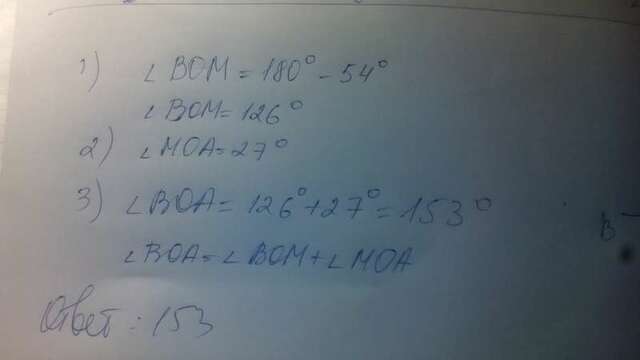 1) ∠BOM = 180° - 54°
∠BOM = 126°
2) ∠MOA = 27°
3) ∠BOA = 126° + 27° = 153°
∠BOA = ∠BOM + ∠MOA
B
Ответ: 153